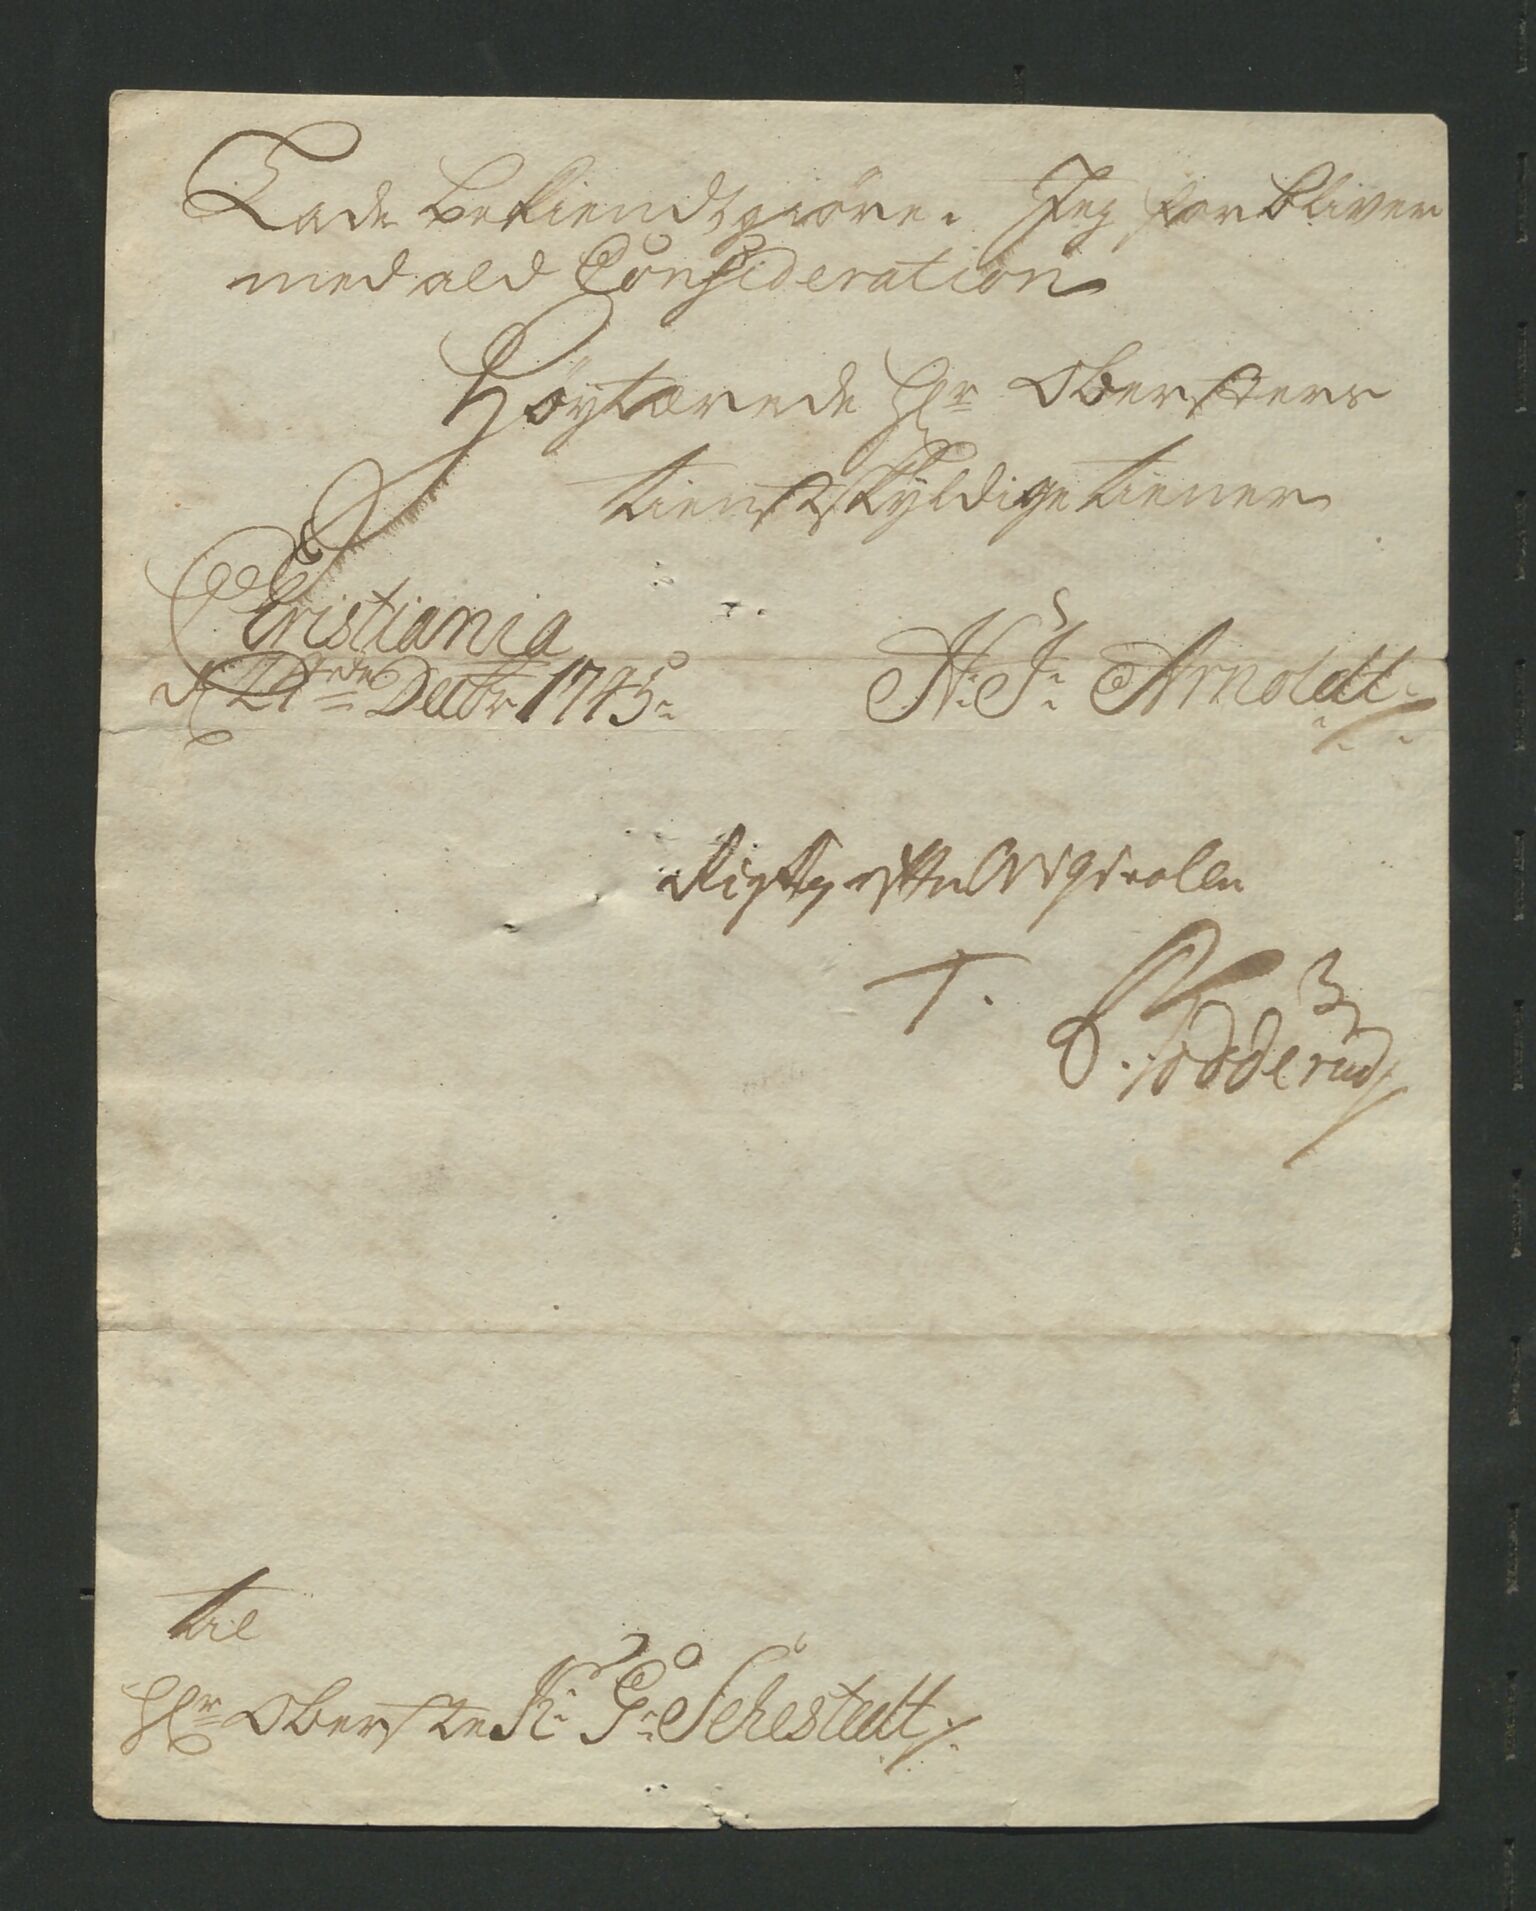 Lade bekiendtgiöre. Jeg forbliver
med ald Consideration
Höytærede Hr Obersters
tienstskyldige tiener
Christiania
d 21de Decbr 1745.
H. J. Arnoldt
Rigtig efter Originalen
T.
til
Hr Oberste K. G. Sehestedt